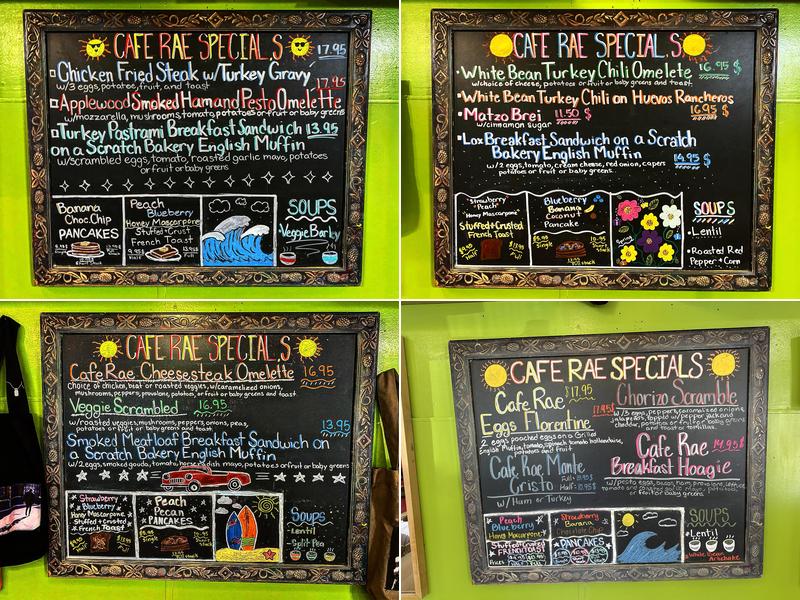 CAFE RAE SPECIALS
17.95
Chicken Fried Steak w/Turkey Gravy
w/3 eggs, potatoes, fruit, and toast
17.95
Applewood Smoked Ham and Pesto Omelette
w/mozzarella, mushrooms, tomato, potatoes or fruit or baby greens
Turkey Pastrami Breakfast Sandwich 13.95
on a Scratch Bakery English Muffin
w/scrambled eggs, tomato, roasted garlic mayo, potatoes
or fruit or baby greens
Banana
Choc.Chip
PANCAKES
Peach
Blueberry
Honey Mascarpone
Stuffed + Crust
French Toast
SOUPS
Veggie Barley
CAFE RAE SPECIALS
White Bean Turkey Chili Omelete 16.95 $
w/choice of cheese, potatoes or fruit or baby greens + toast
White Bean Turkey Chili on Huevos Rancheros
16.95 $
Matzo Brei 11.50 $
w/cinnamon sugar
Lox Breakfast Sandwich on a Scratch
Bakery English Muffin 14.95 $
w/2 eggs, tomato, cream cheese, red onion, capers
potatoes or fruit or baby greens
Strawberry
Peach
Honey Mascarpone
Stuffed+Crusted
French Toast
Blueberry
Banana
Coconut
Pancake
Spring
SOUPS
Lentil
Roasted Red
Pepper + Corn
CAFE RAE SPECIALS
Cafe Rae Cheesesteak Omelette 16.95
Choice of chicken, beef or roasted veggies, w/caramelized onions,
mushrooms, peppers, provolone, potatoes, or fruit or baby greens + toast
Veggie Scrambled 16.95
w/roasted veggies, mushrooms, peppers, onions, peas,
potatoes or fruit or baby greens + toast
13.95
Smoked Meatloaf Breakfast Sandwich on
a Scratch Bakery English Muffin
w/2 eggs, smoked gouda, tomato, horseradish mayo, potatoes or fruit or baby greens
Strawberry
Blueberry
Honey Mascarpone
Stuffed + Crusted
French Toast
Peach
Pecan
PANCAKES
SOUPS
Lentil
Split Pea
CAFE RAE SPECIALS
Cafe Rae $17.95
Eggs Florentine
2 eggs poached eggs on a Grilled
English Muffin, tomato, spinach, tomato hollandaise,
potatoes or fruit
Cafe Rae Monte
Cristo
w/Ham or Turkey
17.95$
Chorizo Scramble
w/3 eggs, peppers, caramelized onions,
jalapeños, topped w/pepper jack and
cheddar, potatoes or fruit or baby greens
and toast or tortillas
Cafe Rae 14.95$
Breakfast Hoagie
w/pesto eggs, bacon, ham, provolone, lettuce,
tomato and roasted garlic mayo, potatoes,
or fruit or baby greens
Peach
Blueberry
Honey Mascarpone
Stuffed + Crusted
FRENCH TOAST
Strawberry
Banana
Chocolate Chip
PANCAKES
SOUPS
Lentil
White Bean
Artichoke